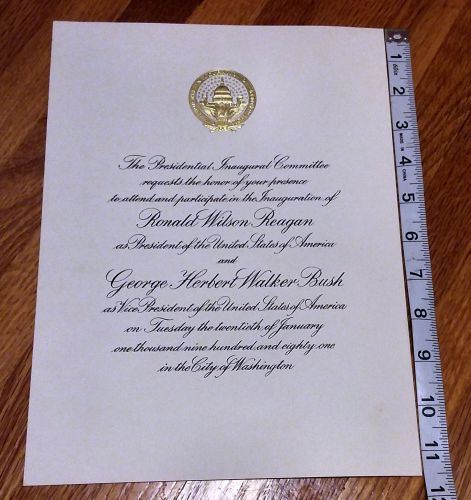 The Presidential Inaugural Committee
requests the honor of your presence
to attend and participate in the Inauguration of
Ronald Wilson Reagan
as President of the United States of America
and
George Herbert Walker Bush
as Vice President of the United States of America
on Tuesday the twentieth of January
one thousand nine hundred and eighty one
in the City of Washington
1
60in
2
3
MADE IN
4
CHINA
5
6
7
8
9
10
11